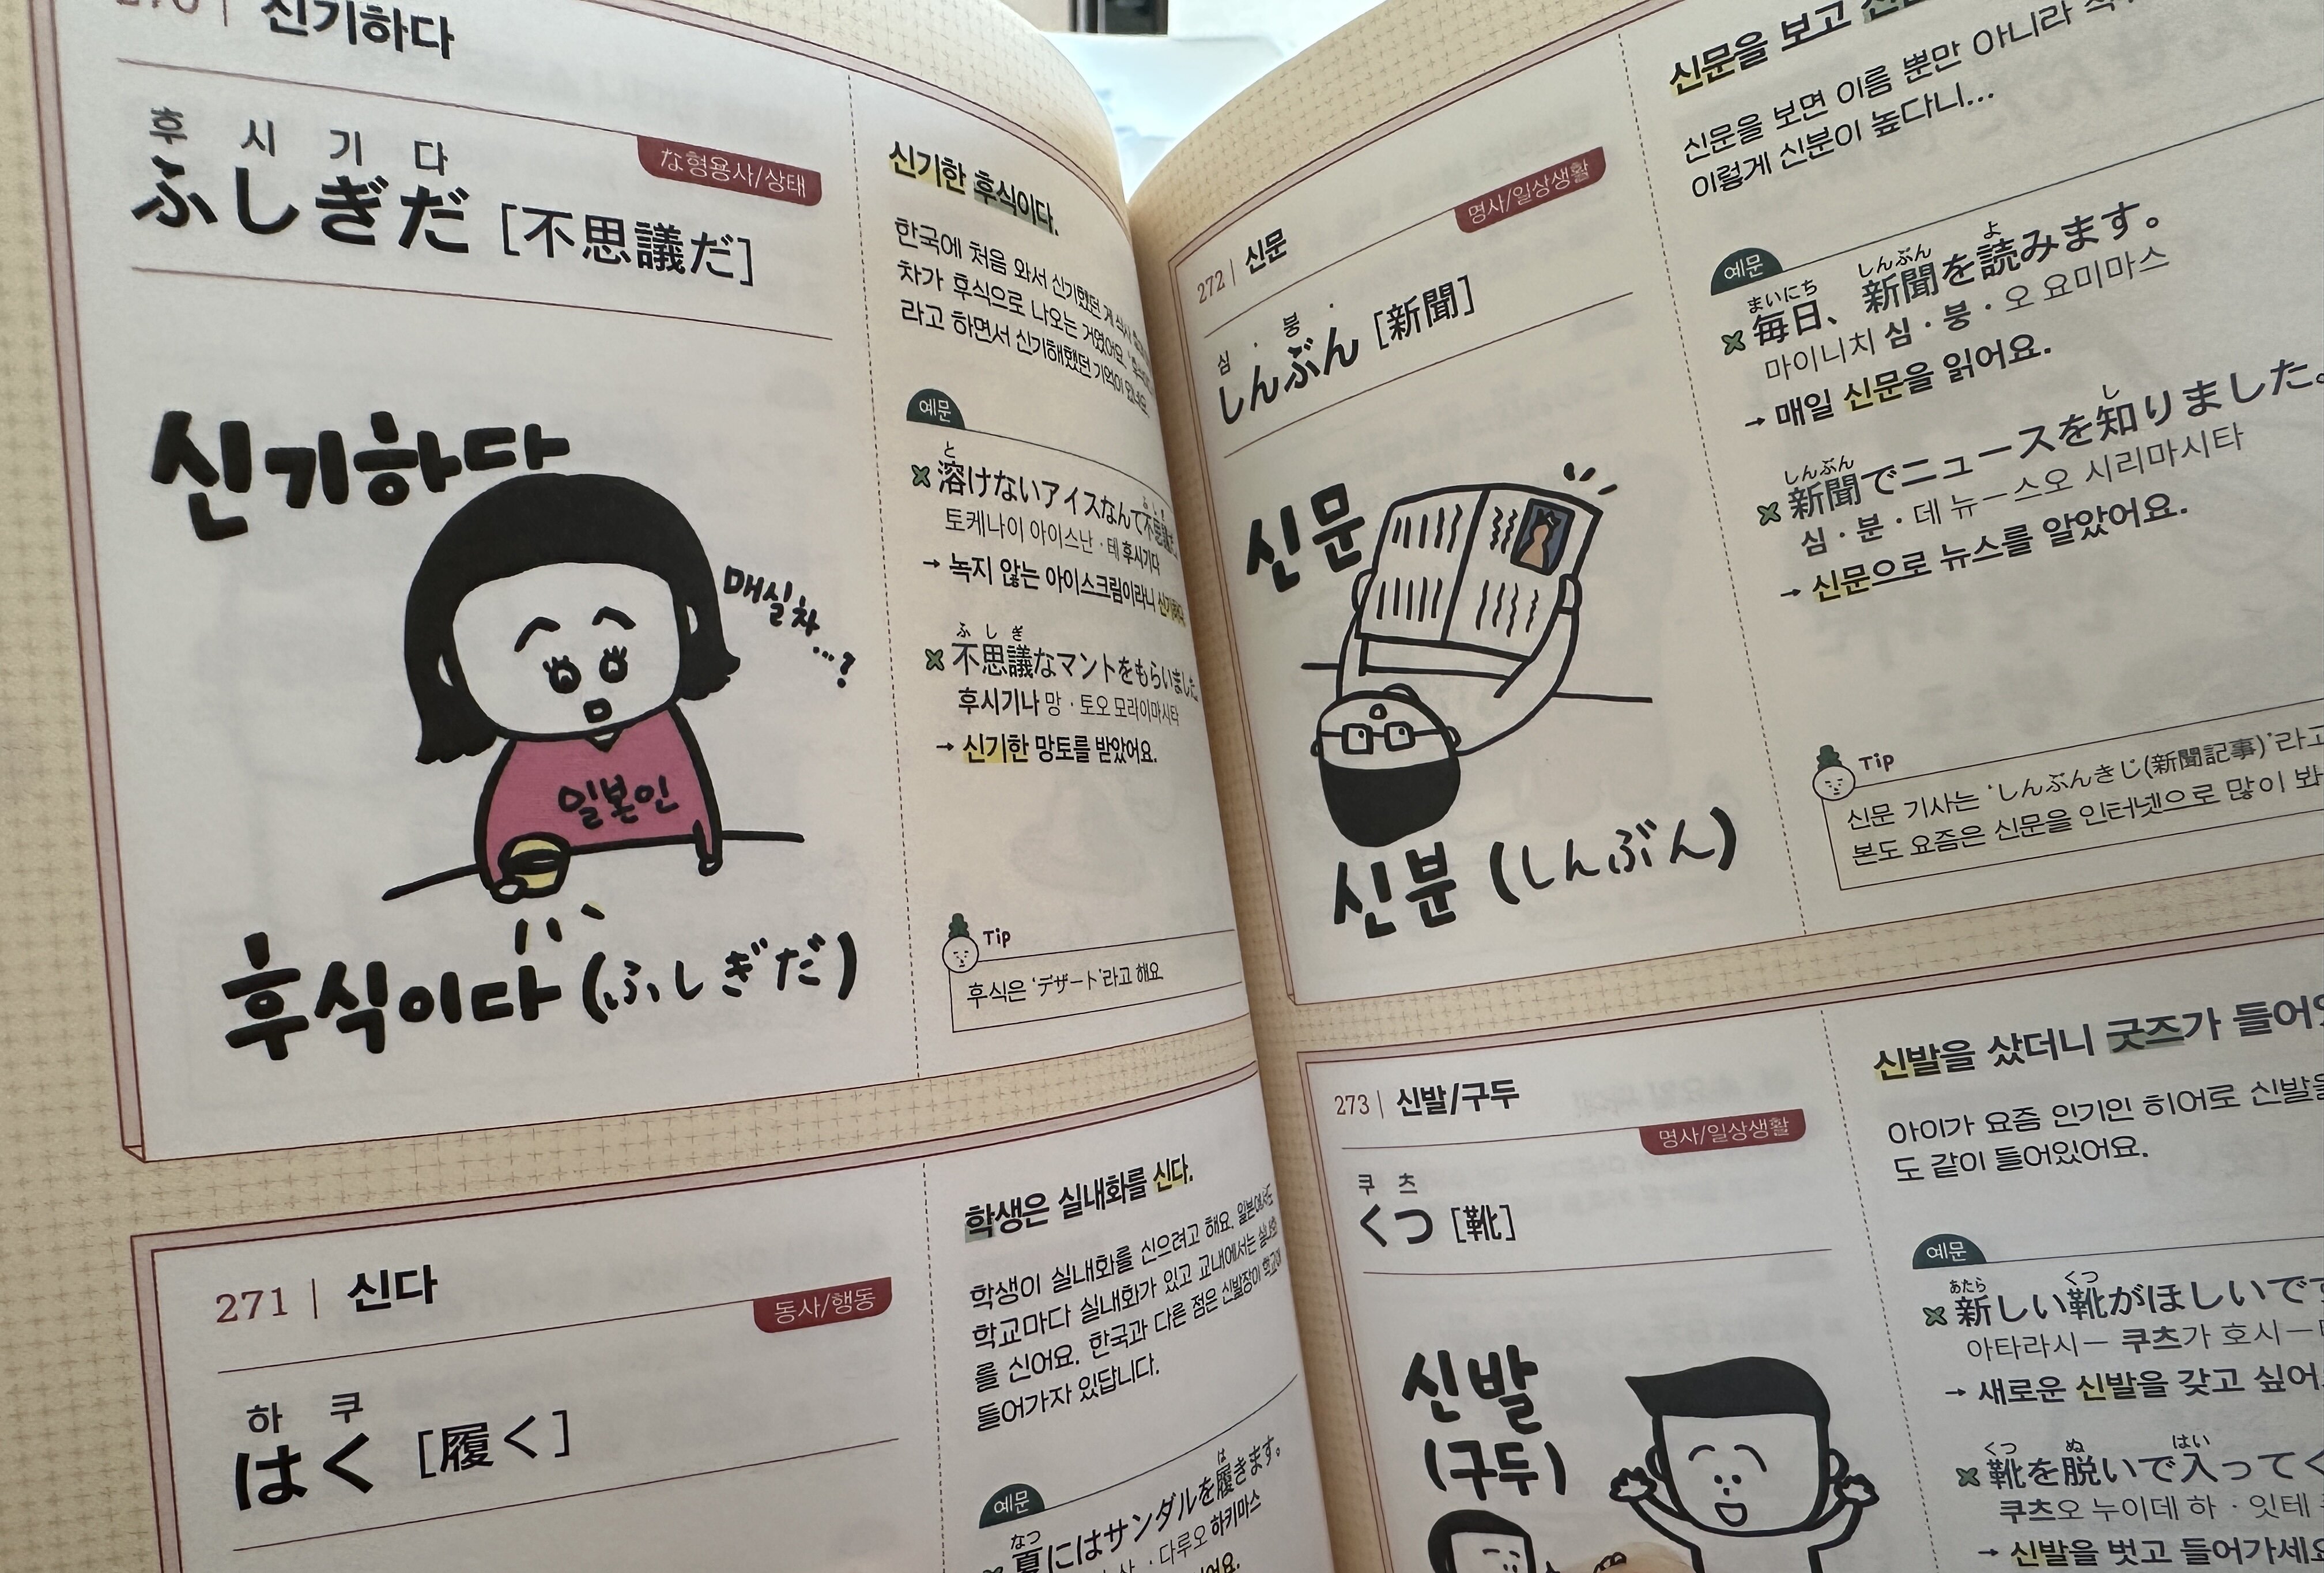 신기하다
후 시 기 다
ふしぎだ [不思議だ]
な형용사/상태
신기하다
매실차
...?
일본인
후식이다 (ふしぎだ)
신기한 후식이다.
한국에 처음 와서 신기했던 게
차가 후식으로 나오는 거였어요.
라고 하면서 신기해했던 기억이
예문
と
溶けないアイスなんて不思議
토케나이 아이스난·테 후시기다
→ 녹지 않는 아이스크림이라니 신기하다.
ふしぎ
不思議なマントをもらいました
후시기나 망·토오 모라이마시타
→ 신기한 망토를 받았어요.
Tip
후식은 ‘デザート’라고 해요
271 | 신다
동사/행동
하 쿠
はく [履く]
학생은 실내화를 신다.
학생이 실내화를 신으려고 해요. 일본에서는
학교마다 실내화가 있고 교내에서는 실내화
를 신어요. 한국과 다른 점은 신발장이 학교에
들어가자 있답니다.
예문
なつ は
夏にはサンダルを履きます。
다루오 하키마스
272 | 신문
명사/일상생활
심 · 붕 ·
しんぶん [新聞]
신문
신분 (しんぶん)
신문을 보고
신문을 보면 이름 뿐만 아니라
이렇게 신분이 높다니...
예문
まいにち しんぶん よ
毎日、新聞を読みます。
마이니치 심·붕·오 요미마스
→ 매일 신문을 읽어요.
しんぶん し
新聞でニュースを知りました。
심·분·데 뉴ー스오 시리마시타
→ 신문으로 뉴스를 알았어요.
Tip
신문 기사는 ‘しんぶんきじ(新聞記事)’라고
본도 요즘은 신문을 인터넷으로 많이 봐
273 | 신발/구두
명사/일상생활
쿠 츠
くつ [靴]
신발
(구두)
신발을 샀더니 굿즈가
아이가 요즘 인기인 히어로 신발을
도 같이 들어있어요.
예문
あたら くつ
新しい靴がほしいで
아타라시ー 쿠츠가 호시ー
→ 새로운 신발을 갖고 싶어
くつ ぬ はい
靴を脱いで入って
쿠츠오 누이데 하·잇테
→ 신발을 벗고 들어가세요